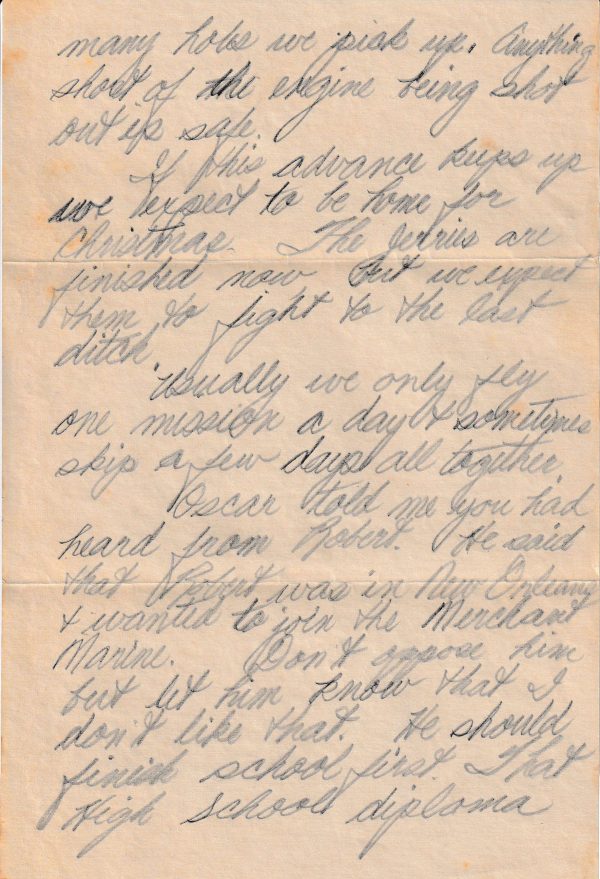 many holes we pick up. Anything
short of the engine being shot
out is safe.
If this advance keeps up
we expect to be home for
Christmas. The Jerries are
finished now but we expect
them to fight to the last
ditch.
Usually we only fly
one mission a day & sometimes
skip a few days all together.
Oscar told me you had
heard from Robert. He said
that Robert was in New Orleans
& wanted to join the Merchant
Marine. Don't oppose him
but let him know that I
don't like that. He should
finish school first. That
High School diploma